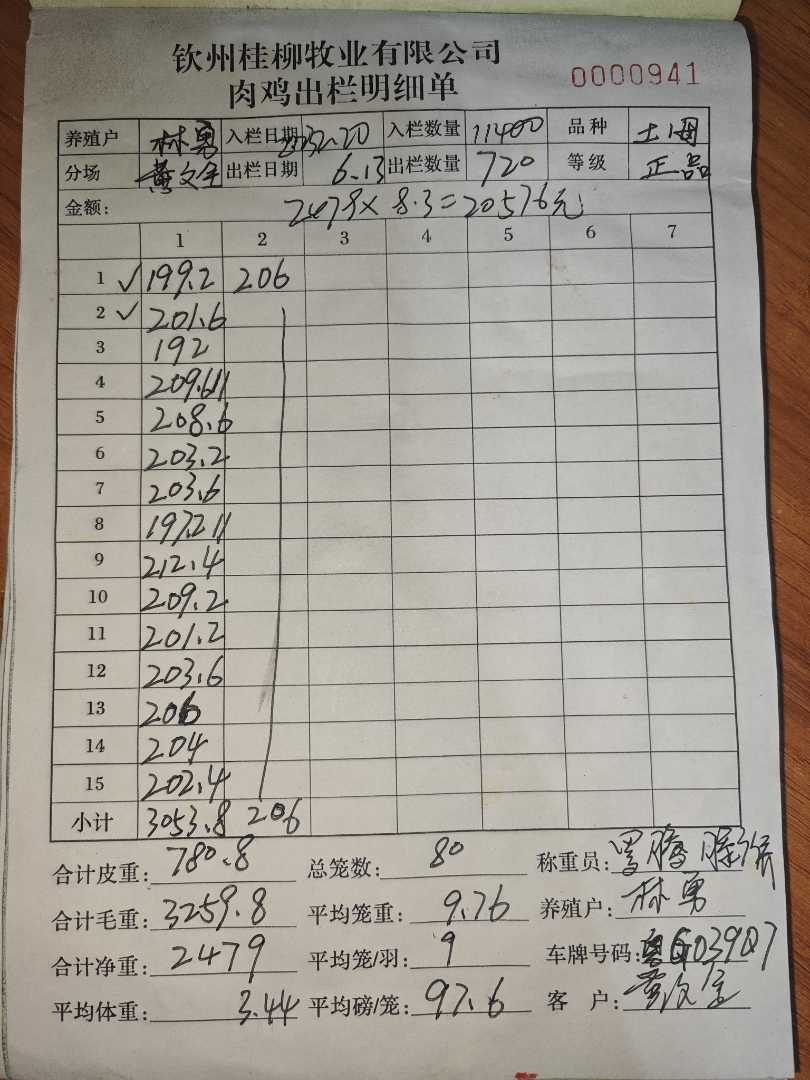 钦州桂柳牧业有限公司
肉鸡出栏明细单 0000941
养殖户 林勇 入栏日期 入栏数量 11400 品种 土
分场 出栏日期 6.13 出栏数量 720 等级 正品
金额: 2479×8.3=20576元
1 2 3 4 5 6 7
1 ✓ 199.2 206
2 ✓ 201.6
3 192
4 209.6 //
5 208.6
6 203.2
7 203.6
8 197.2 //
9 212.4
10 209.2
11 201.2
12 203.6
13 206
14 204
15 202.4
小计 3053.8 206
合计皮重: 780.8 总笼数: 80 称重员:
合计毛重: 3259.8 平均笼重: 9.76 养殖户: 林勇
合计净重: 2479 平均笼/羽: 9 车牌号码:
平均体重: 3.44 平均磅/笼: 97.6 客户: